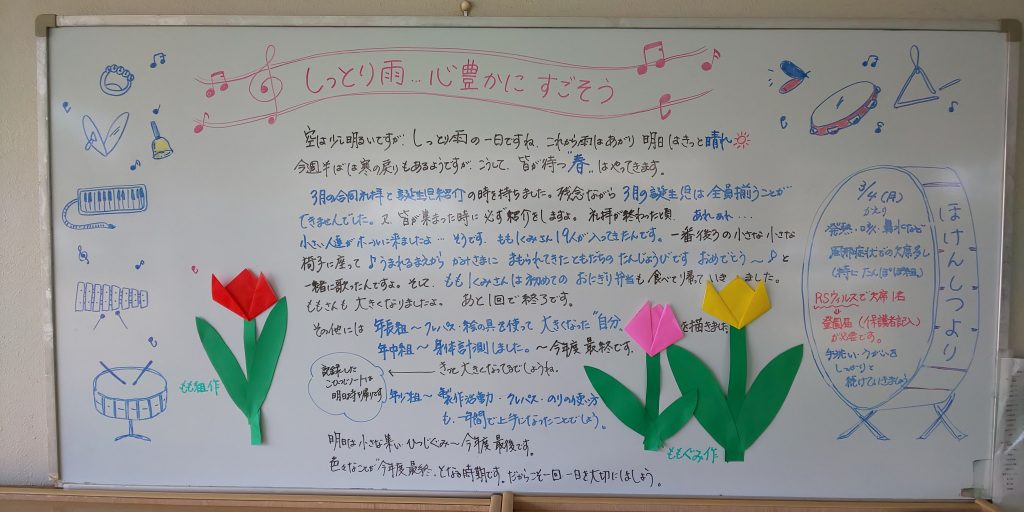 しっとり雨…心豊かに すごそう
空は少し明るいですが、しっとり雨の一日ですね。これから雨はあがり 明日はきっと晴れ
今週半ばは寒の戻りもあるようですが、こうして、皆が待つ"春"はやってきます。
3月の合同礼拝と誕生児紹介の時を持ちました。残念ながら 3月の誕生児は全員揃うことが
できませんでした。又、皆が集まった時に必ず紹介をしますよ。礼拝が終わった頃 あれあれ…
小さい人達がホールに来ましたよ… そうです。ももぐみさん19人が入ってきたんです。一番後ろの小さな小さな
椅子に座って♪うまれるまえから かみさまに まもられてきたともだちの たんじょうびです おめでとう～♪と
一緒に歌ったんですよ。そして、ももぐみさんは初めての おにぎり弁当も食べて帰っていきました。
ももさんも 大きくなりましたよ。 あと1回で終了です。
その他には 年長組～クレパス・絵の具を使って 大きくなった"自分" を描きました
年中組～身体計測しました。～今年度最終です。
きっと大きくなってるでしょうね。
記録した
こひつじノートは
明日持ち帰りです
年少組～製作活動・クレパス・のりの使い方
も、一年間で上手になったことでしょう。
明日は小さな集い ひつじぐみ～今年度最後です。
色々なことが"今年度最終"となる時期です。だからこそ一回一日を大切にしましょう。
もも組作
ももぐみ作
ほけんしつより
3/4(月)
かえり
発熱・咳・鼻水など
風邪症状での欠席多し
(特にたんぽぽ組)
RSウィルスで欠席1名
→
登園届(保護者記入)
が必要です。
手洗い・うがいを
しっかりと
続けていきましょう